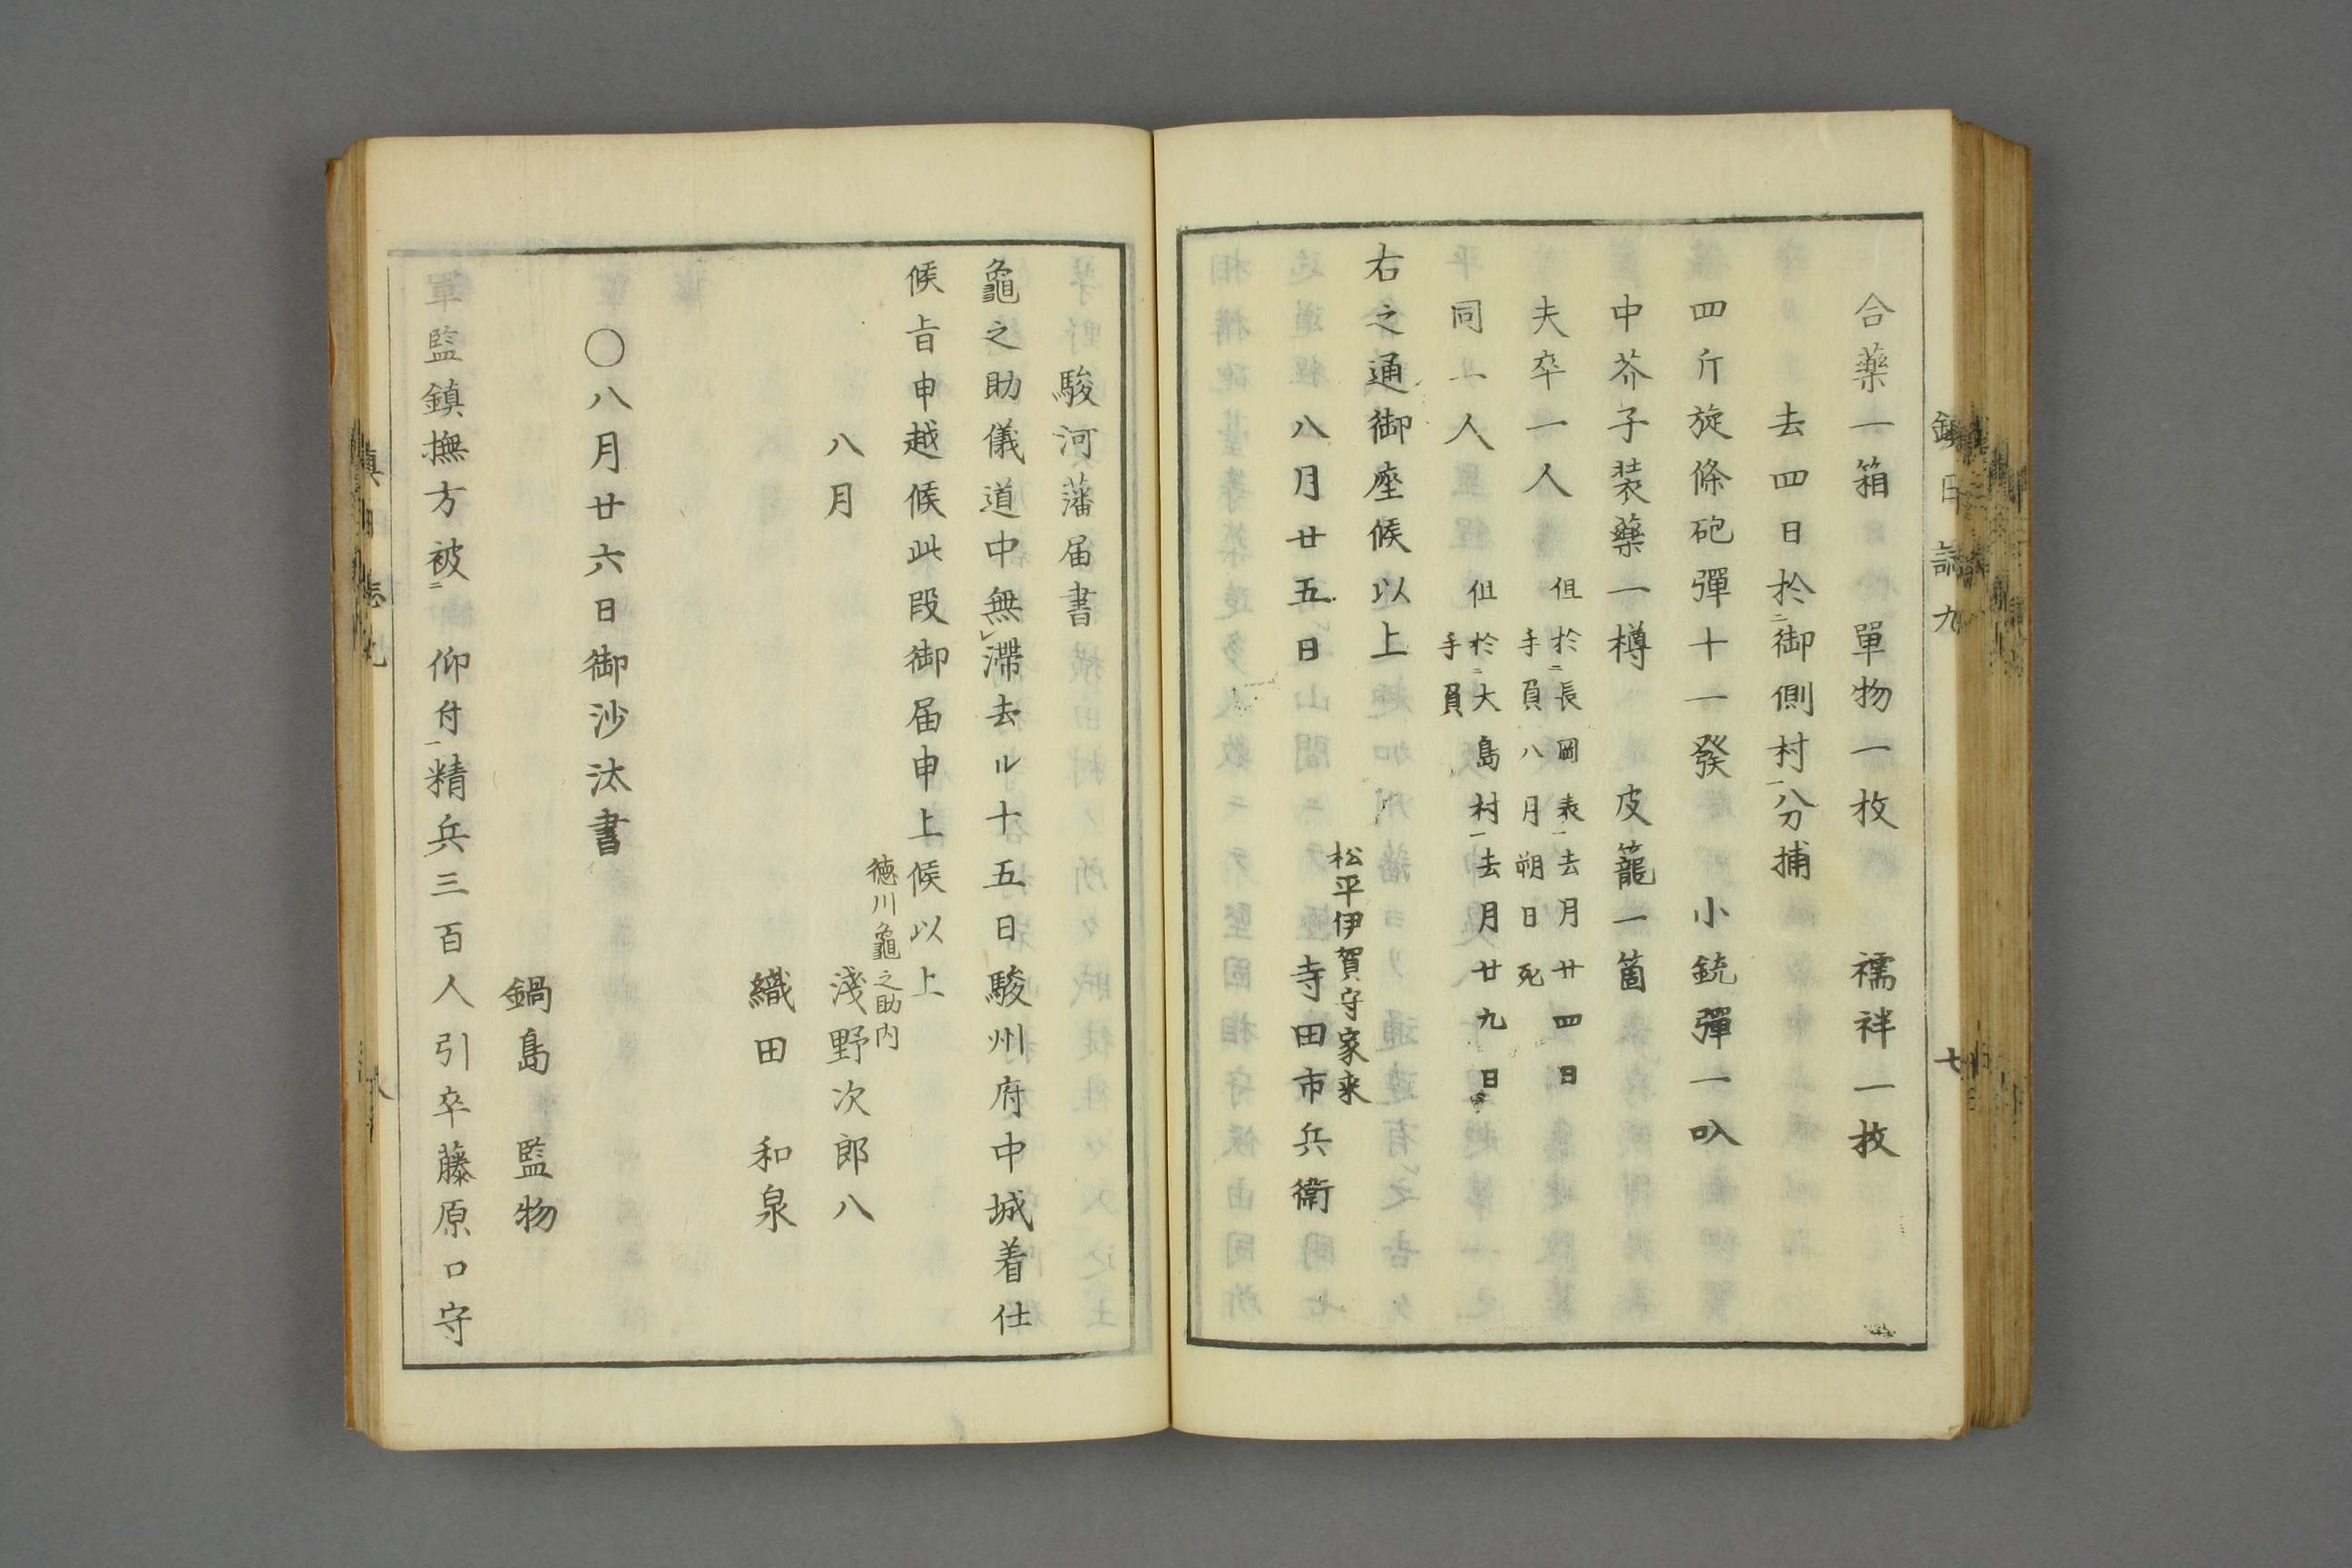 合藥一箱　單物一枚　襦袢一枚
去四日於二御側村一分捕
四斤旋條砲彈十一發　小銃彈一叺
中芥子装藥一樽　皮籠一箇
夫卒一人　但於二長岡表一去月廿四日
手負八月朔日死
同　一人　但於二大島村一去月廿九日
手負
右之通御座候以上
松平伊賀守家来
八月廿五日　寺田市兵衞
駿河藩届書
龜之助儀道中無レ滯去ル十五日駿州府中城着仕
候旨申越候此段御届申上候以上
徳川龜之助内
八月　淺野次郎八
織田　和泉
〇八月廿六日御沙汰書
鍋島　監物
軍監鎮撫方被二　仰付一精兵三百人引卒藤原口守